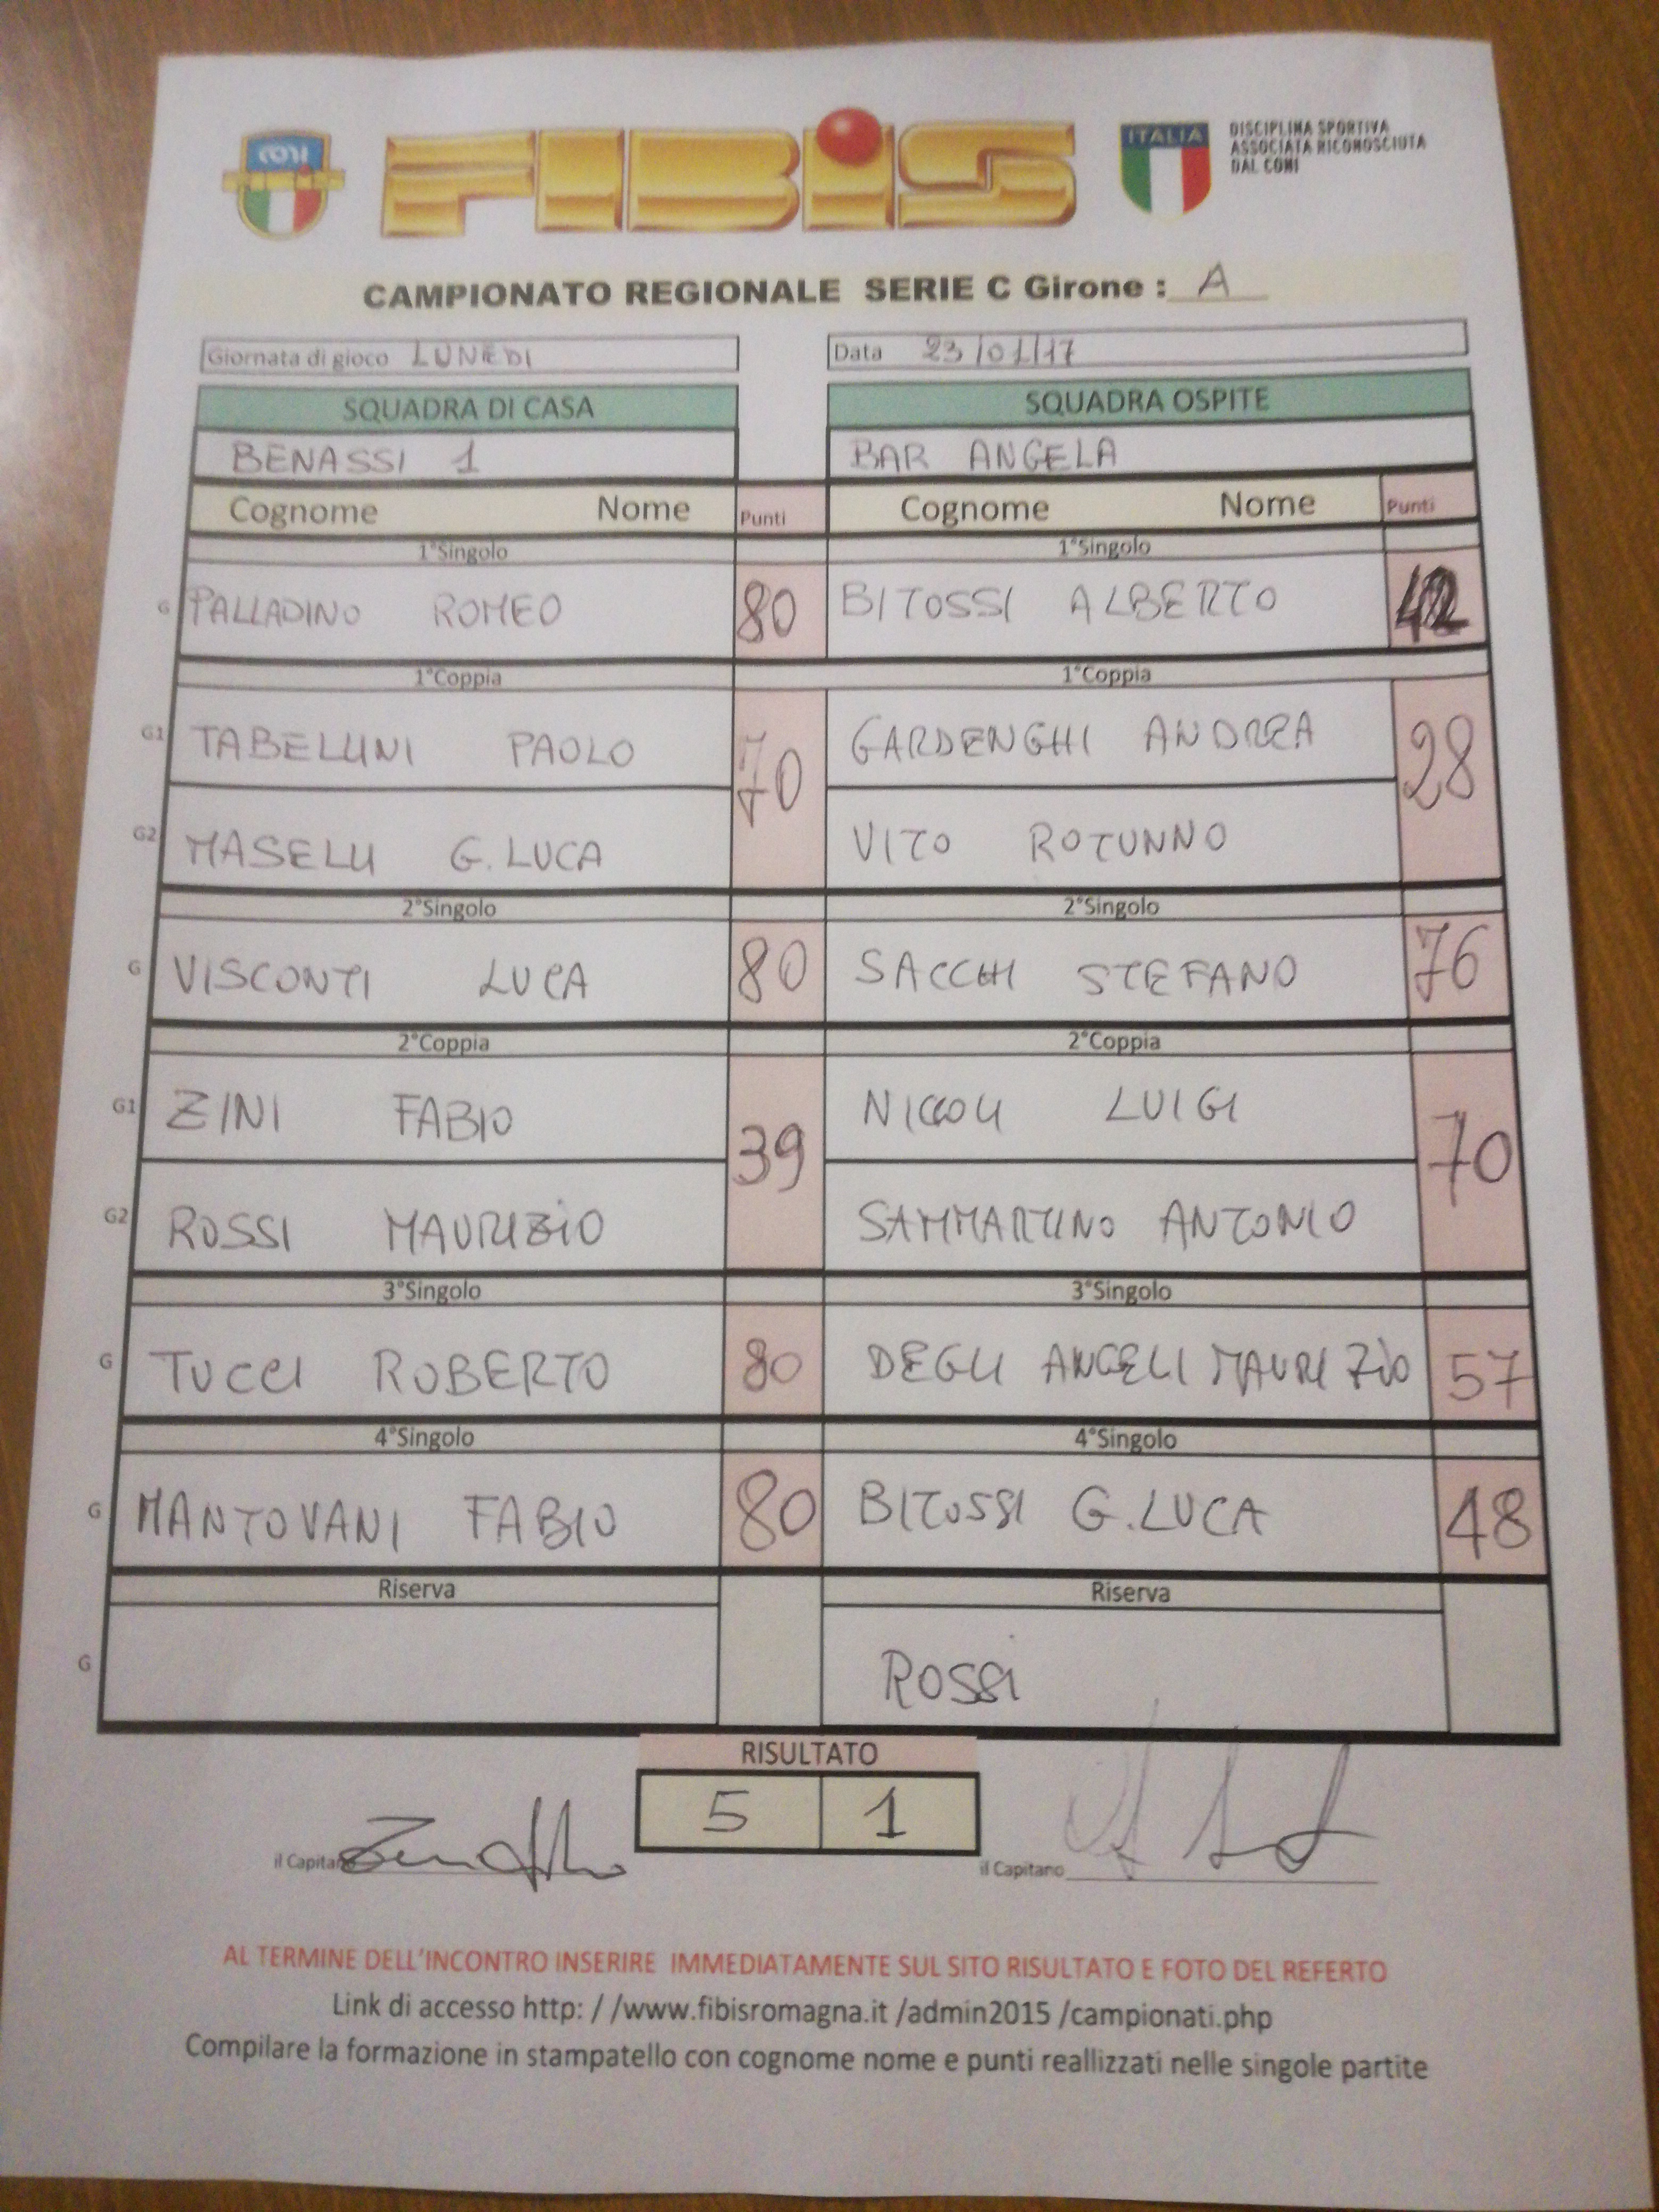 CONI
FIBIS
ITALIA
DISCIPLINA SPORTIVA
ASSOCIATA RICONOSCIUTA
DAL CONI
CAMPIONATO REGIONALE SERIE C Girone : A
Giornata di gioco LUNEDI Data 23/01/17
SQUADRA DI CASA SQUADRA OSPITE
BENASSI 1 BAR ANGELA
Cognome Nome Punti Cognome Nome Punti
1°Singolo 1°Singolo
G PALLADINO ROMEO 80 BITOSSI ALBERTO 42
1°Coppia 1°Coppia
G1 TABELLINI PAOLO 70 GARDENGHI ANDREA 28
G2 MASELLI G.LUCA VITO ROTUNNO
2°Singolo 2°Singolo
G VISCONTI LUCA 80 SACCHI STEFANO 76
2°Coppia 2°Coppia
G1 ZINI FABIO 39 NICCOLI LUIGI 70
G2 ROSSI MAURIZIO SAMMARTINO ANTONIO
3°Singolo 3°Singolo
G TUCCI ROBERTO 80 DEGLI ANGELI MAURIZIO 57
4°Singolo 4°Singolo
G MANTOVANI FABIO 80 BITOSSI G.LUCA 48
Riserva Riserva
G ROSSI
RISULTATO
5 1
il Capitano il Capitano
AL TERMINE DELL'INCONTRO INSERIRE IMMEDIATAMENTE SUL SITO RISULTATO E FOTO DEL REFERTO
Link di accesso http: / /www.fibisromagna.it /admin2015 /campionati.php
Compilare la formazione in stampatello con cognome nome e punti reallizzati nelle singole partite